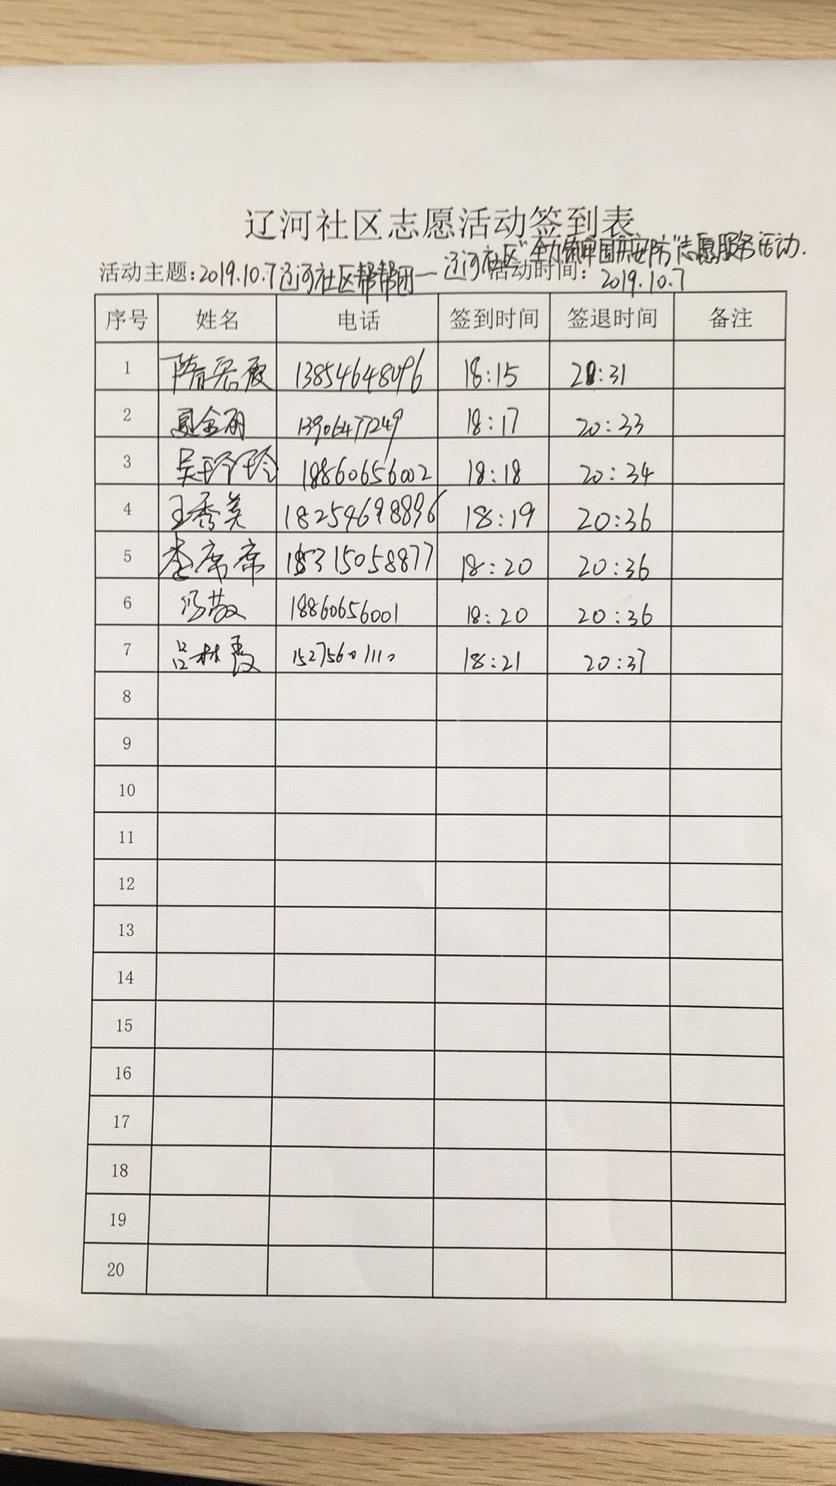 辽河社区志愿活动签到表
活动主题:2019.10.7辽河社区帮帮团—辽河社区"全力保国庆安防"志愿服务活动.
活动时间: 2019.10.7
序号 姓名 电话 签到时间 签退时间 备注
1 隋宏霞 13854648096 18:15 20:31
2 夏金丽 13906477249 18:17 20:33
3 吴玲玲 18860656002 18:18 20:34
4 王秀美 18254698896 18:19 20:36
5 李席席 15315058877 18:20 20:36
6 冯敬 18860656001 18:20 20:36
7 吕林霞 15275601110 18:21 20:37
8
9
10
11
12
13
14
15
16
17
18
19
20